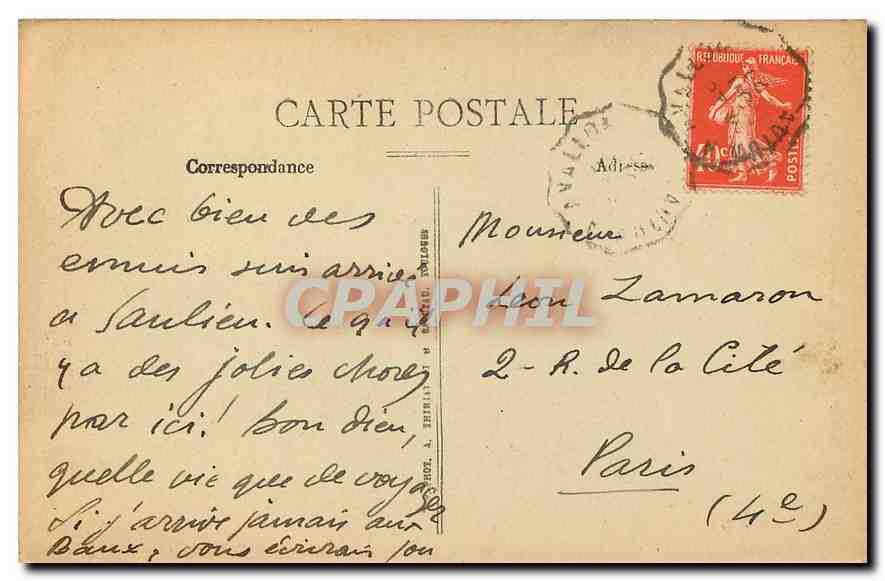 CARTE POSTALE
Correspondance
Adresse
REPUBLIQUE FRANÇAISE
10 c
POSTES
AVALLON
AVALLON
AUTUN
Avec bien des
ennuis suis arrivé
a Saulieu. Ce qu'il
y a des jolies choses
par ici! bon dieu,
quelle vie que de voyager
Si j'arrive jamais aux
Baux, vous écrirais
Monsieur
Leon Zamaron
2 - R. de la Cité
Paris
(4e)
PHOT. A. THIRIAT TOULOUSE
CPAPHIL